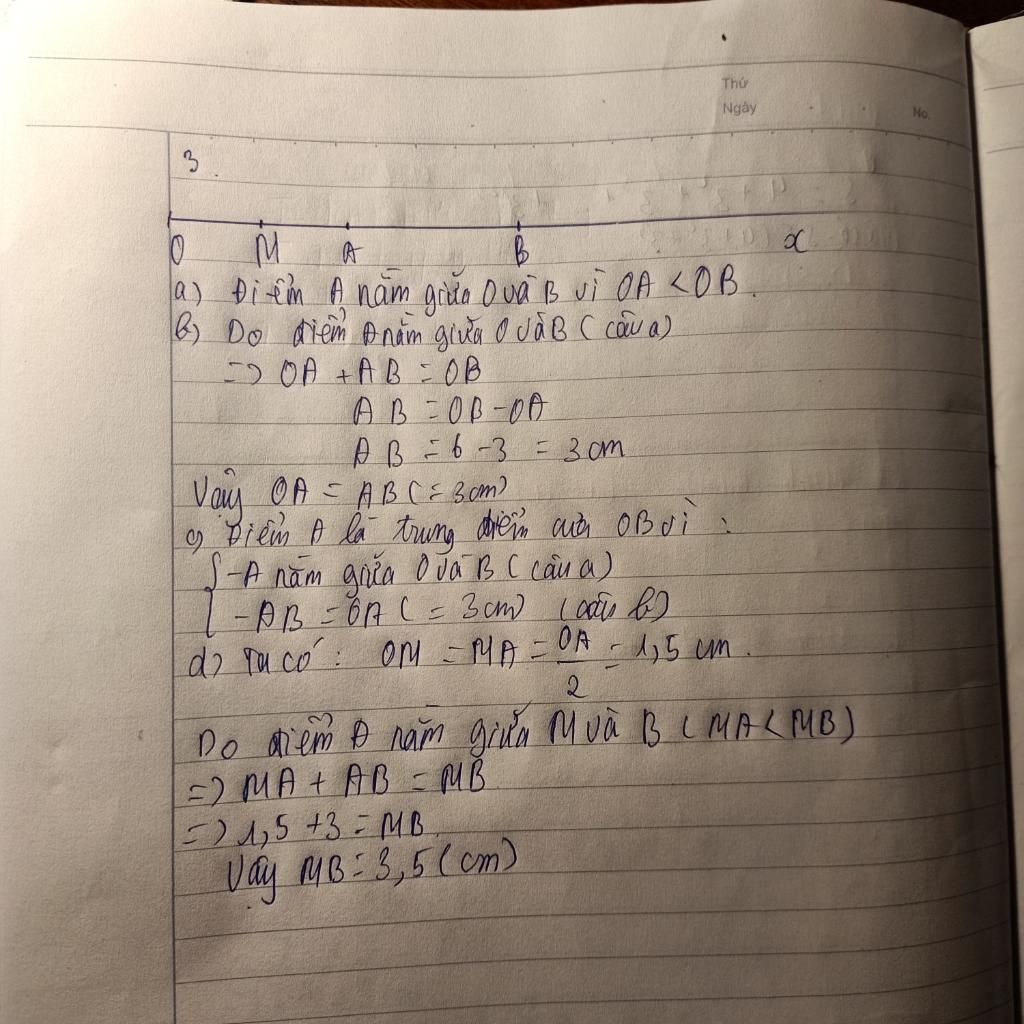 Thứ
Ngày
No.
3.
O M A B x
a) Điểm A nằm giữa O và B vì OA < OB.
b) Do điểm A nằm giữa O và B (câu a)
=> OA + AB = OB
AB = OB - OA
AB = 6 - 3 = 3 cm
Vậy OA = AB (= 3cm)
c) Điểm A là trung điểm của OB vì :
{ - A nằm giữa O và B (câu a)
- AB = OA (= 3cm) (câu b)
d) Ta có : OM = MA = OA/2 = 1,5 cm.
Do điểm A nằm giữa M và B (MA < MB)
=> MA + AB = MB
=> 1,5 + 3 = MB
Vậy MB = 3,5 (cm)